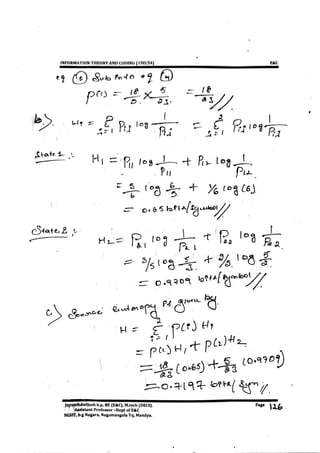 INFORMATION THEORY AND CODING (17EC54) E&C
eq (5) Sub into eq (4)
P(1) = 18/5 × 5/23 = 18/23//
b). Hi = Σ Pij log 1/Pij = Σ Pij log 1/Pij
State 1 :- H1 = P11 log 1/P11 + P12 log 1/P12
= 5/6 log 6/5 + 1/6 log (6)
= 0.65 bits/symbol//
State 2 :- H2 = P21 log 1/P21 + P22 log 1/P22
= 3/5 log 5/3 + 2/5 log 5/2
= 0.9709 bits/symbol//
c) Source Entropy is given by
H = Σ P(i) Hi
= P(1) H1 + P(2) H2
= 18/23 (0.65) + 5/23 (0.9709)
= 0.7197 bits/sym//
BE (E&C), M.tech (DECS).
Assistant Professor –Dept of E&C
B.g Nagara, Nagamangala Tq, Mandya.
Page 126